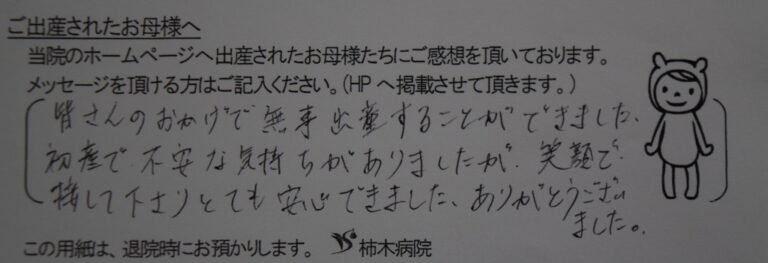 ご出産されたお母様へ
当院のホームページへ出産されたお母様たちにご感想を頂いております。
メッセージを頂ける方はご記入ください。(HPへ掲載させて頂きます。)
皆さんのおかげで無事出産することができました、
初産で、不安な気持ちがありましたが、笑顔で
接して下さりとても安心できました、ありがとうござい
ました。
この用紙は、退院時にお預かりします。 柿木病院